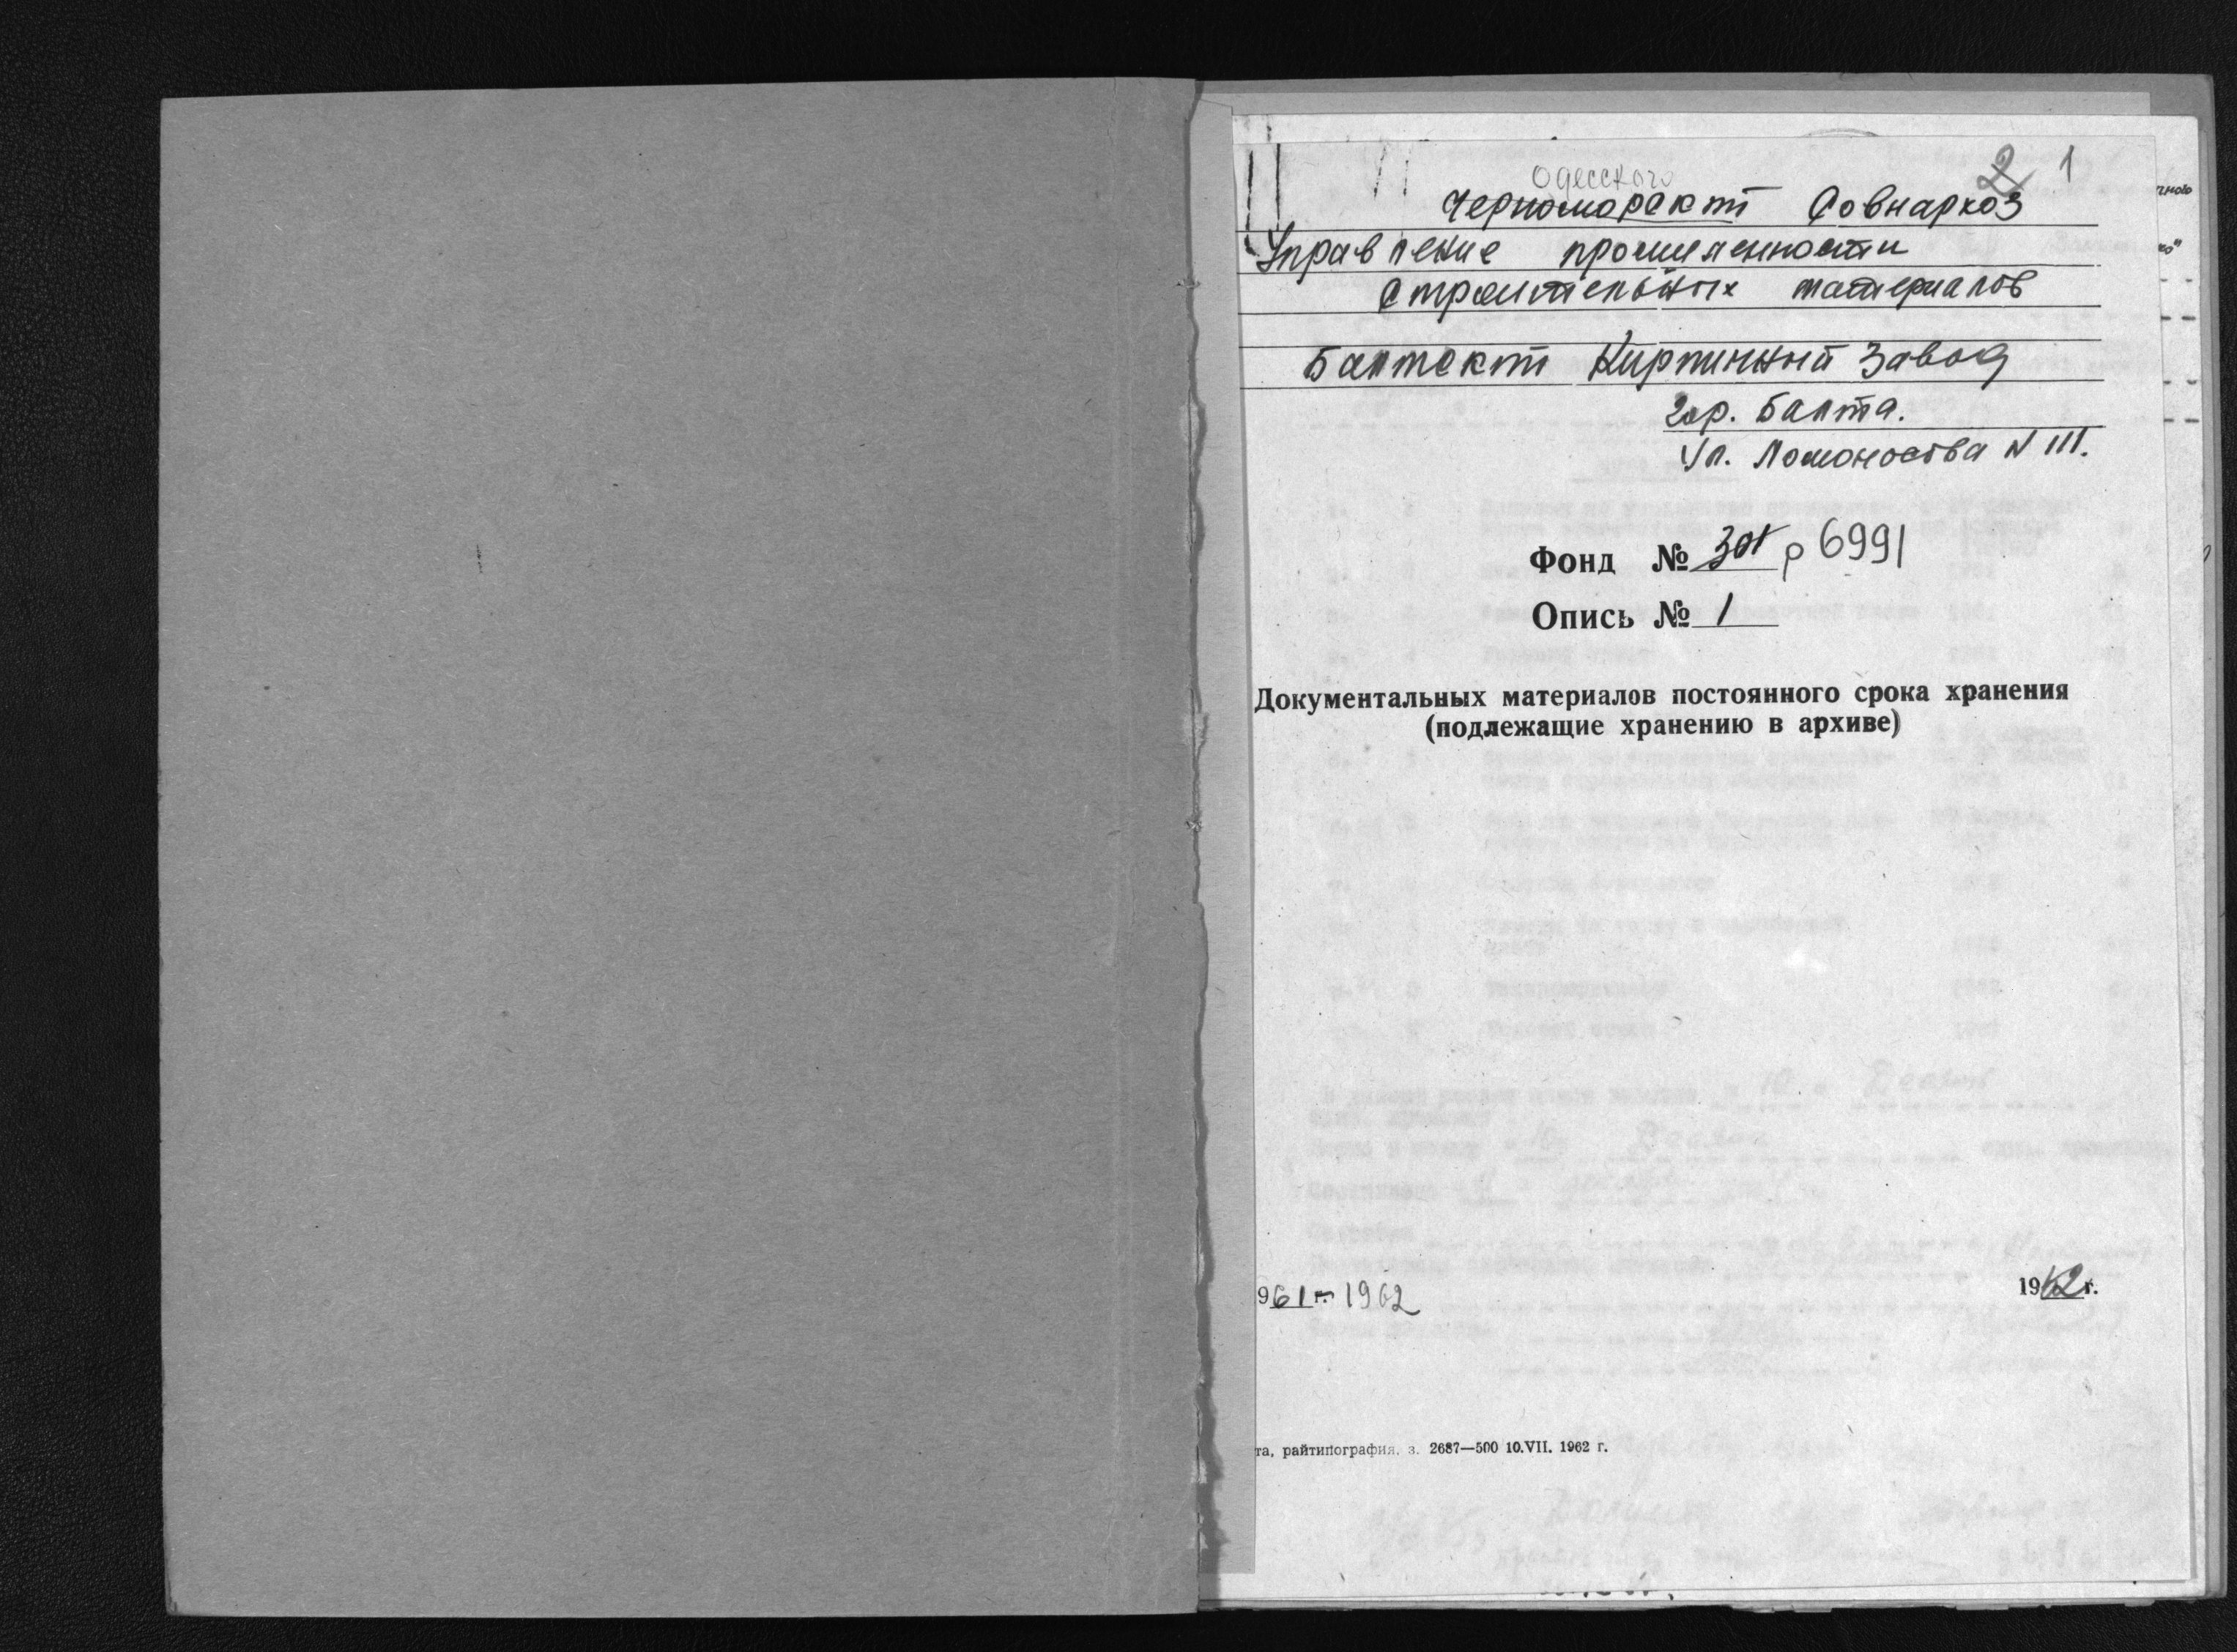 2 1
одесского
Черноморский Совнархоз
Управление промышленности
строительных материалов
Балтский Кирпичный Завод
гор. Балта.
Ул. Ломоносова N 111.
Фонд № 301 р 6991
Опись № 1
Документальных материалов постоянного срока хранения
(подлежащие хранению в архиве)
961 г.- 1962
1962 г.
та, райтипография, з. 2687—500 10.VII. 1962 г.